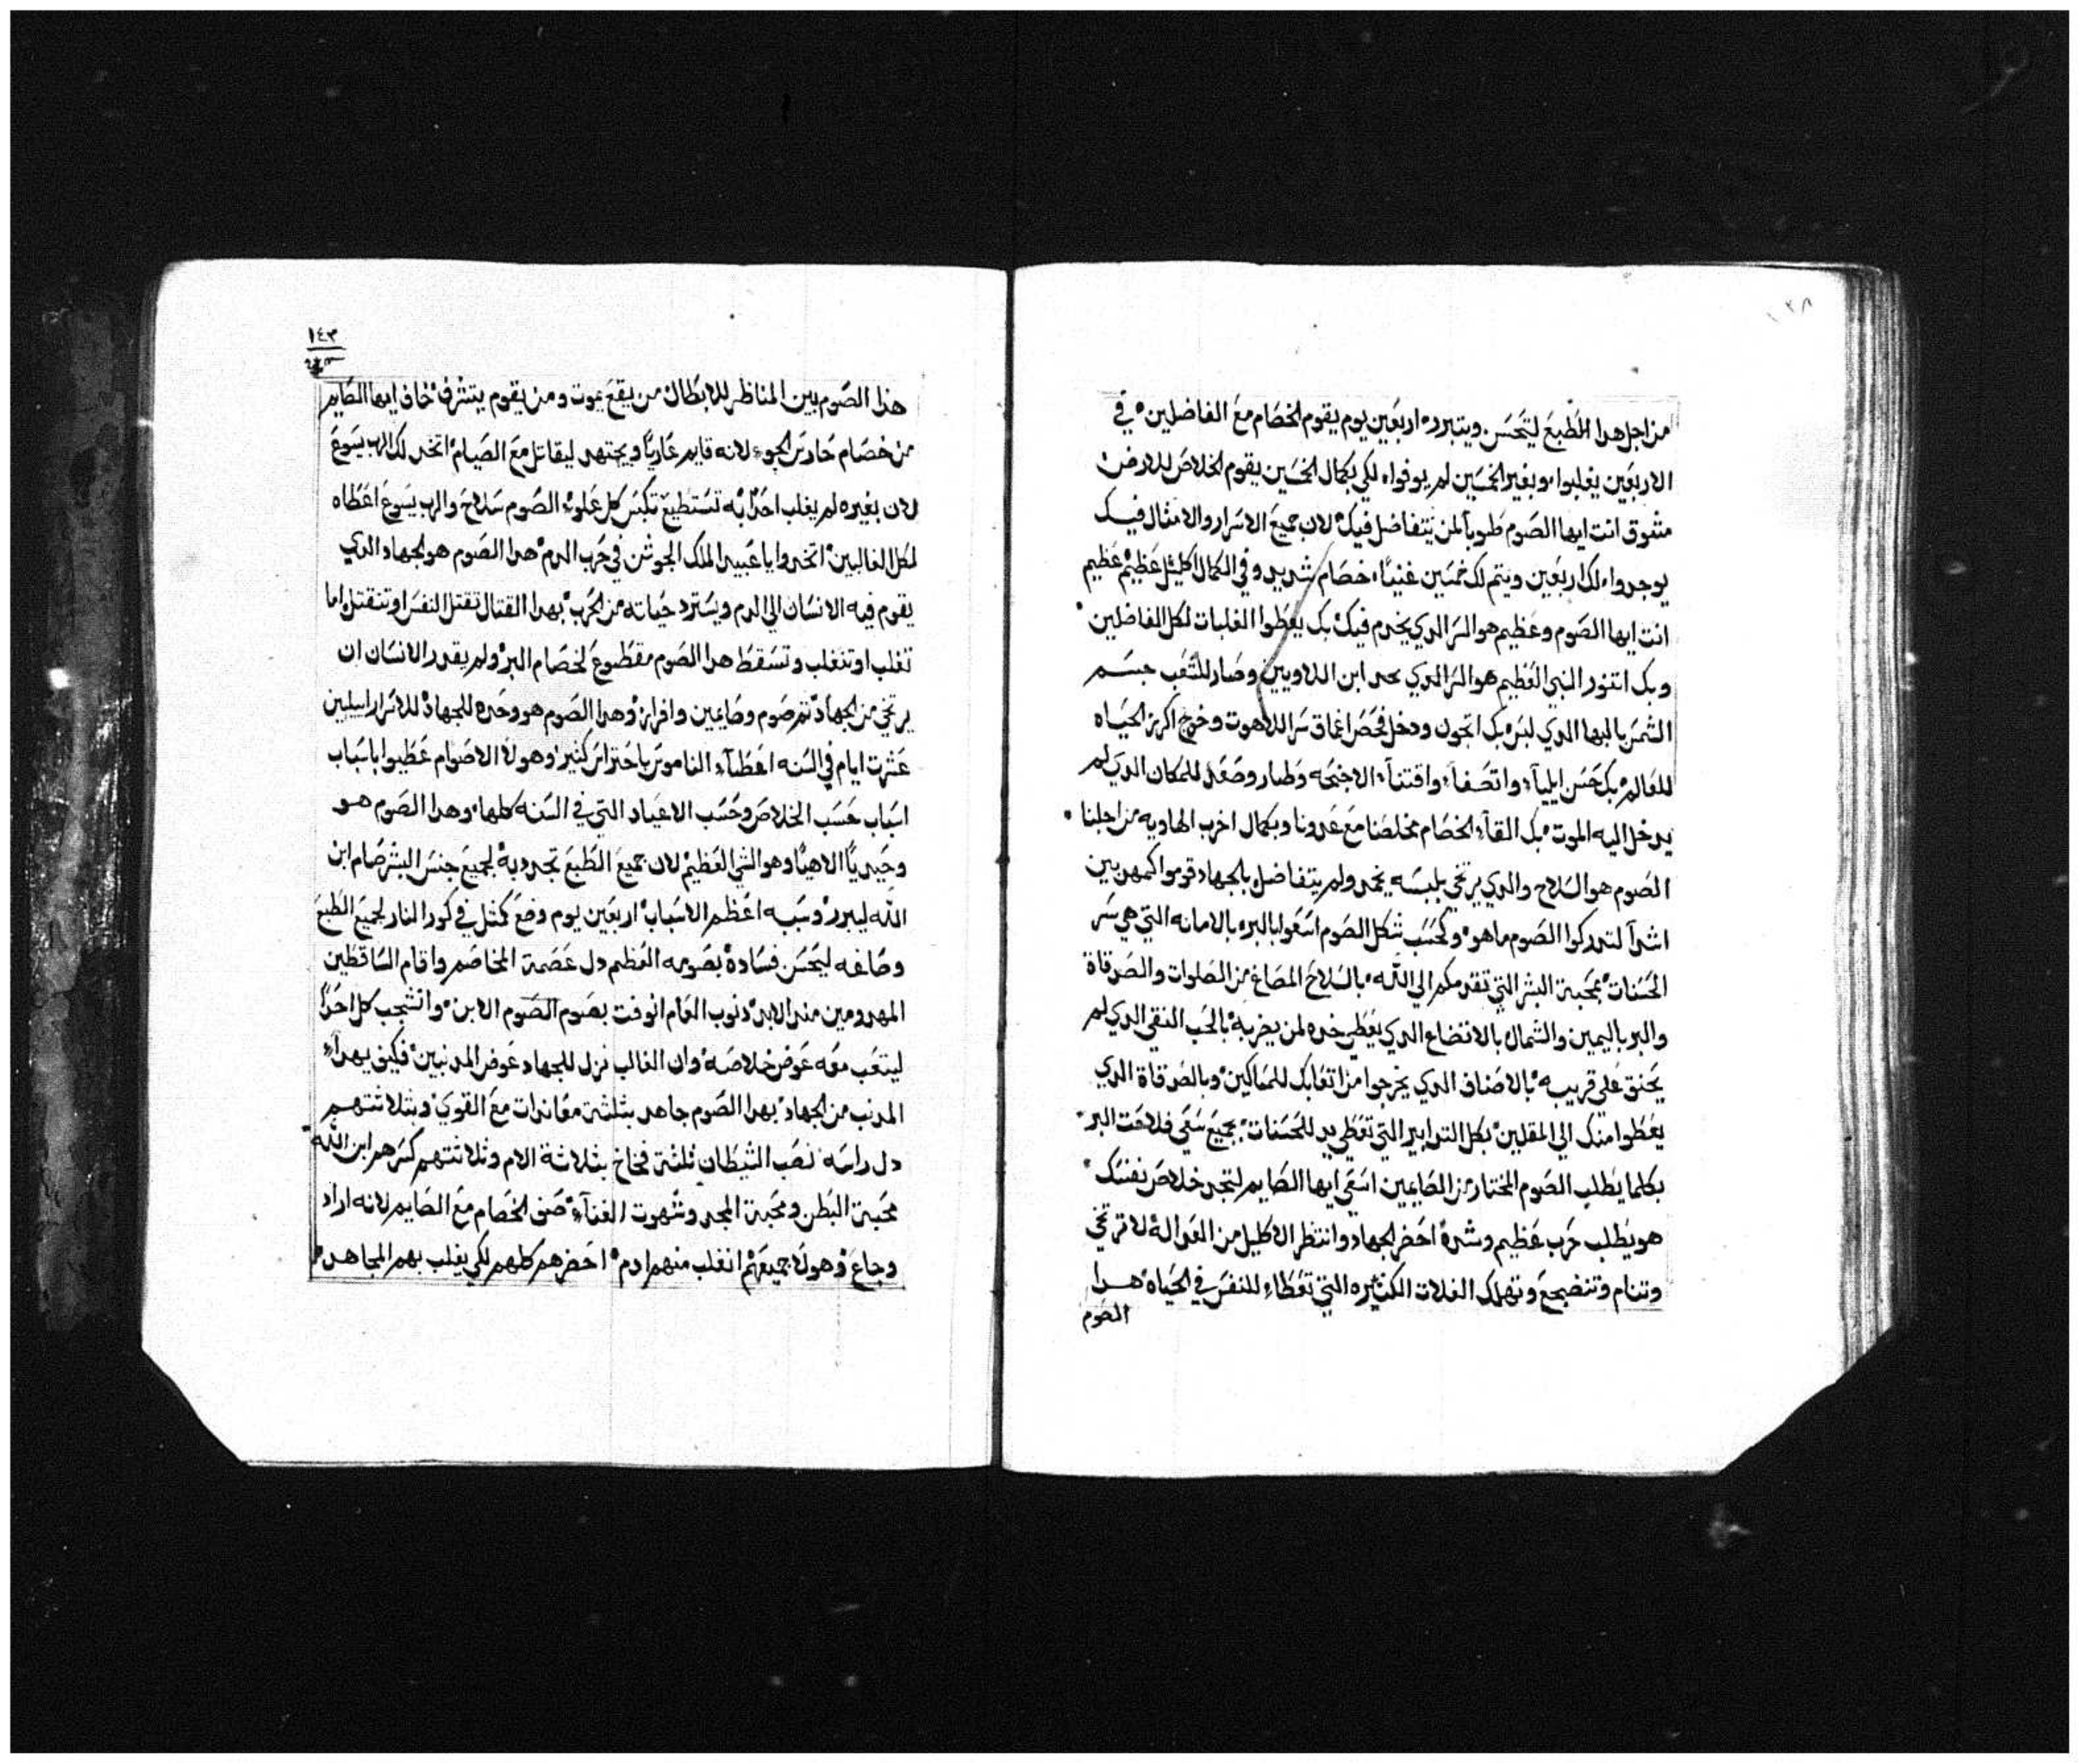 ١٣٨
من اجل هدا الطبع ليتحسن ويتبرر اربعين يوم يقوم الخصام مع الفاضلين في
الاربعين يغلبوا وبغير الخمسين لم يوفوا لكي بكمال الخمسين يقوم الخلاص للارض
متفوق انت ايها الصوم طوباً لمن يتفاضل فيك لان جميع الاسرار والامثال فيك
يوجدوا لك اربعين ويتم لك خمسين غنيًا خصام شديد وفي الكمال اكليل عظيم عظيم
انت ايها الصوم وعظيم هو السر الدي يخدم فيك بك يعطوا الغلبات لكل الفاضلين
وبك اتنور النبي العظيم هو السر الدي ابن اللاويين وصار للشعب جسم
الشمس بالبها الدي لبس بك اتجون ودخل فحص اعماق سر اللاهوت وخرج اكرز الحياه
للعالم بك حسن ايلياء واتصفا واقتناء الاجنحه وطار وصعد للمكان الدي لم
يدخل اليه الموت بك القاء الخصام مخلصنا مع عدونا وبكمال اخرب الهاويه من اجلنا
الصوم هو السلاح والدي يرتخي بلبسه يخمد ولم يتفاضل بالجهاد قوموا كمهرين
اشراً لتدركوا الصوم ما هو وكحسب شكل الصوم اسعوا بالبر بالامانه التي هي سر
الحسنات بمحبة البشر التي تقدمكم الي الله بالسلاح المصاغ من الصلوات والصدقاة
والبر باليمين والشمال بالاتضاع الدي يعطي خده لمن يضربه بالحب النقي الدي لم
يحنق علي قريبه بالاصناف الدي يخرجوا من اتعابك للمساكين وبالصدقاة الدي
يعطوا منك الي المقلين بكل التدابير التي تعطي يد للحسنات بجميع شي فلاحت البر
بكلما يطلب الصوم المختار من الصايمين اسقي ايها الصايم لتجد خلاص نفسك
هو يطلب حرب عظيم وشدة احضر الجهاد وانتظر الاكليل من العدالة لا ترتخي
وتنام وتنضجع وتهلك الغلات الكثيره التي تعطاء للنفس في الحياه هدا
الصوم
١٤٣
هذا الصوم بين المناظر للابطال من يقع يموت ومن يقوم يتشرف خاف ايها الصايم
من خصام حارس الجوء لانه قايم عاريًا ويجتهد ليقاتل مع الصيام اتخد لك الرب يسوع
لان بغيره لم يغلب احدًا به تستطيع تكبس كل علوء الصوم سلاح والرب يسوع اعطاه
لكل الغالبين اتخدوا يا عبيد الملك الجوشن في حرب الدم هدا الصوم هو الجهاد الدي
يقوم فيه الانسان الي الدم ويسترد حياته من الحرب بهدا القتال تقتل النفس او تنقتل اما
تغلب او تنغلب وتسقط هدا الصوم مقطوع لخصام البر ولم يقدر الانسان ان
يرتخي من الجهاد تم صوم وصايمين وافراز وهدا الصوم هو وحده للجهاد للاسرار اسلين
عشرت ايام في السنه اعطاء الناموس باحتراس كثير وهولا الاصوام عطيوا باسباب
اسباب حسب الخلاص وحسب الاعياد التي في السنه كلها وهدا الصوم هو
وحيديًا الاهيًا وهو الشي العظيم لان جميع الطبع تجدد به لجميع جنس البشر صام ابن
الله ليبرر وسبه اعظم الاسباب اربعين يوم وضع كمثل في كور النار لجميع الطبع
وصاغه ليحسن فساده بصومه العظيم دل عصمة المخاصم واقام الساقطين
المهدومين مند الابد دنوب العام انوفت بصوم الصوم الابن وانشجب كل احدًا
ليتعب معه عوض خلاصه وان الغالب نزل للجهاد عوض المدنبين فكيف يهداء
المدنب من الجهاد بهدا الصوم جاهد بثلثة معاندات مع القوي وبثلاثتهم
دل راسه نصب الشيطان ثلثة فخاخ بثلاثة الام وثلاثتهم كسرهم ابن الله
محبة البطن ومحبة المجد وشهوت الغناء صنف الخصام مع الصايم لانه اراد
وجاع وهولا جميعهم انغلب منهم ادم احضرهم كلهم لكي يغلب بهم المجاهد